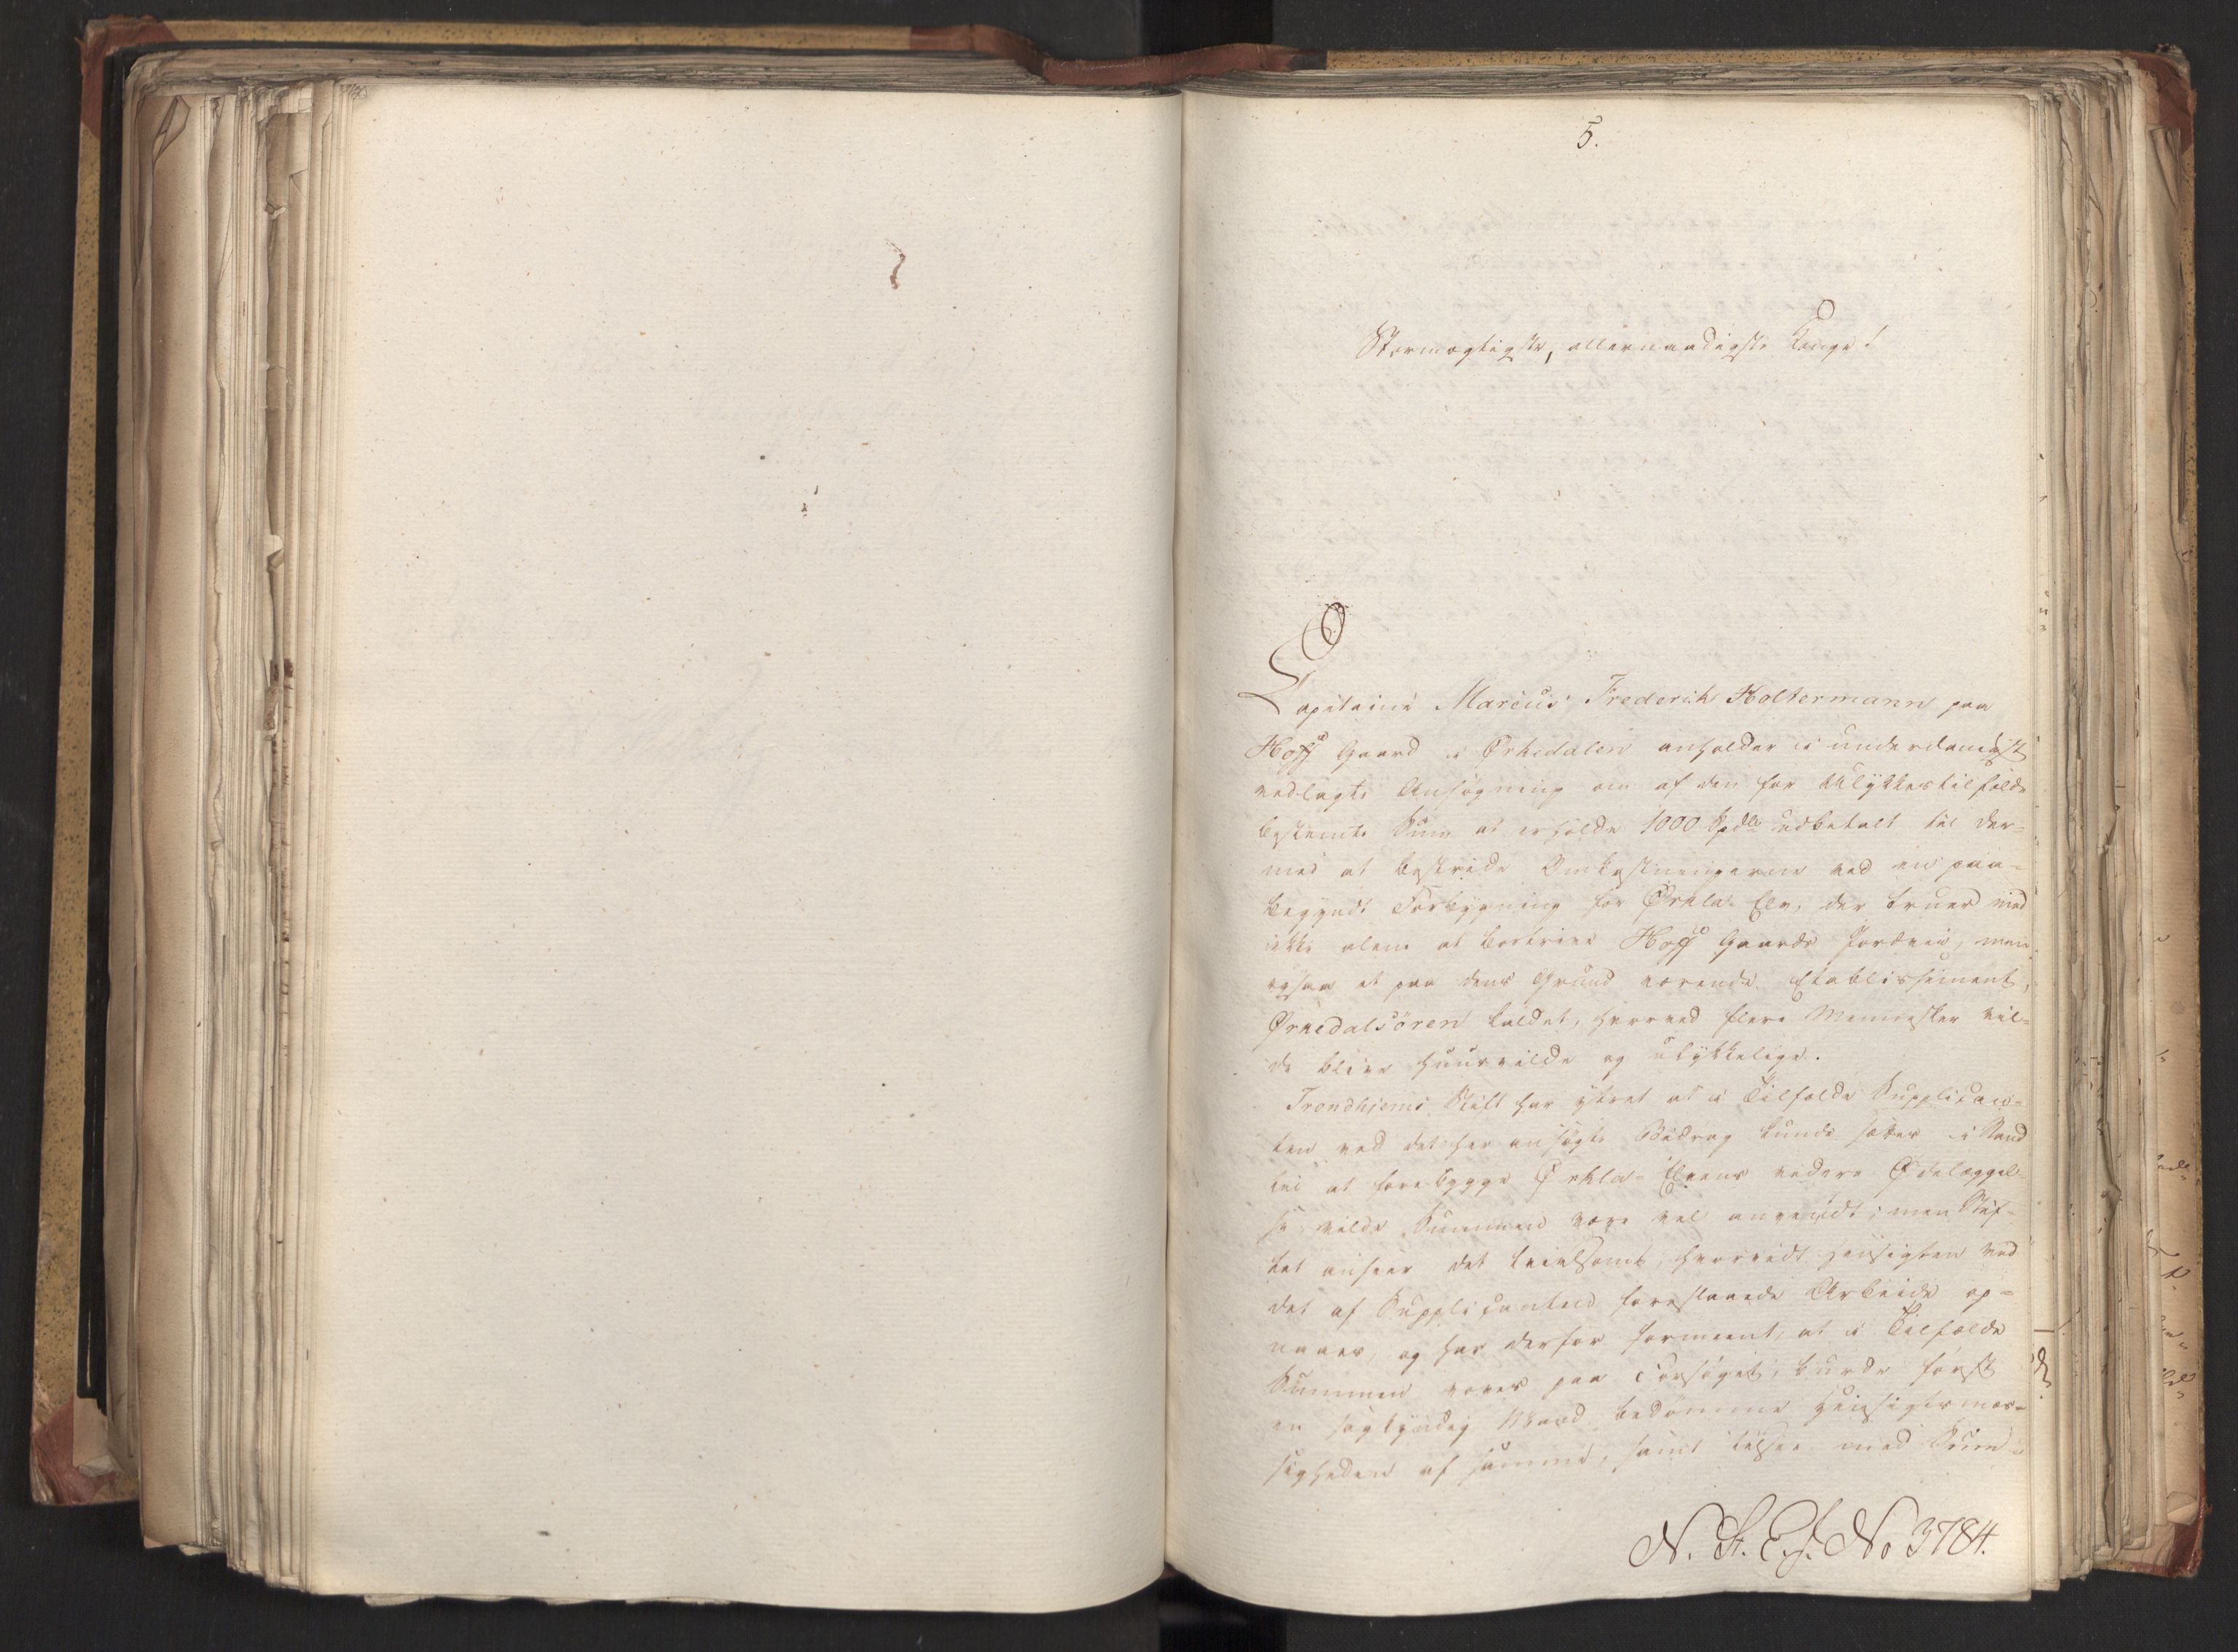 5.
Stormægtigste, allernaadigste Konge!
Capitaine Marcus Frederik Holtermann paa
Hoff Gaard i Ørkedalen anholder i underdanigst
vedlagte Ansøgning om af den for Ulykkestilfælde
bestemte Sum at erholde 1000 Spdlr udbetalt til der=
med at bestride Omkostningerne ved en paa=
begyndt Forbygning for Ørkla Elv, der truer med
ikke alene at bortrive Hoff Gaards Jordvei, men
ogsaa et paa dens Grund værende Etablissement,
Ørkedalsören kaldet, hvorved flere Mennesker vil=
de blive huusvilde og ulykkelige.
Trondhjems Stift har ytret at i Tilfælde Supplican=
ten ved det her ansøgte Bidrag kunde sættes i Stand
til at forebygge Ørkla-Elvens videre Ødelæggel=
se vilde Summen være vel anvendt; men Stif=
tet anseer det tvivlsomt, hvorvidt Hensigten ved
det af Supplicanten foreslaaede Arbeide op=
naaes, og har derfor formeent, at i Tilfælde
Summen voves paa Forsøget, burde først
en sagkyndig Mand bedømme Hensigtsmæs=
sigheden af samme, samt tilsee med Sum=
N. St. E. J. No 3784.